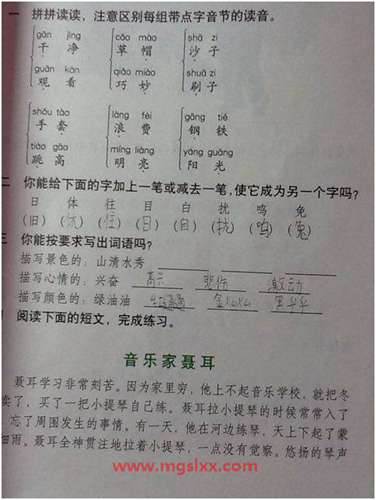 一 拼拼读读，注意区别每组带点字音节的读音。
gān jìng cǎo mào shā zi
干 净 草 帽 沙 子
guān kàn qiǎo miào shuā zi
观 看 巧 妙 刷 子
shǒu tào làng fèi gāng tiě
手 套 浪 费 钢 铁
tiào gāo míng liàng yáng guāng
跳 高 明 亮 阳 光
二 你能给下面的字加上一笔或减去一笔，使它成为另一个字吗？
日 体 往 目 白 扰 鸣 免
(旧) ( ) ( ) (日) (自) (扰) (鸣) (兔)
三 你能按要求写出词语吗？
描写景色的：山清水秀
描写心情的：兴奋 高兴 悲伤 激动
描写颜色的：绿油油 金灿灿 黑乎乎
阅读下面的短文，完成练习。
音乐家聂耳
聂耳学习非常刻苦。因为家里穷，他上不起音乐学校，就把冬
卖了，买了一把小提琴自己练。聂耳拉小提琴的时候常常入了
忘了周围发生的事情。有一天，他在河边练琴，天上下起了蒙
细雨。聂耳全神贯注地拉着小提琴，一点没有觉察。悠扬的琴声
www.mgslxx.com